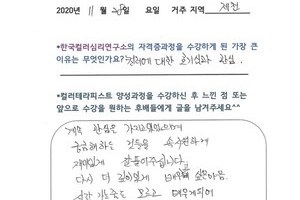 2020년 11월 28일 요일 거주 지역 제천
*한국컬러심리연구소의 자격증과정을 수강하게 된 가장 큰
이유는 무엇인가요? 컬러에 대한 호기심과 관심.
*컬러테라피스트 양성과정을 수강하신 후 느낀 점 또는
앞으로 수강을 원하는 후배들에게 글을 남겨주세요^^
계속 관심은 가지고있었는데
궁금해하는 것들을 속시원하게
재미있게 잘 풀어주십니다.
다시 더 깊이있게 배우고 싶은마음.
시간 가는줄도 모르고 배우게되어